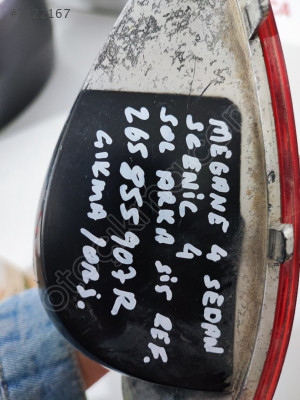 22167
MEGANE 4 SEDAN
SCENİC 4
SOL ARKA SİS REF.
265 855 907R
ÇIKMA / ORJ.